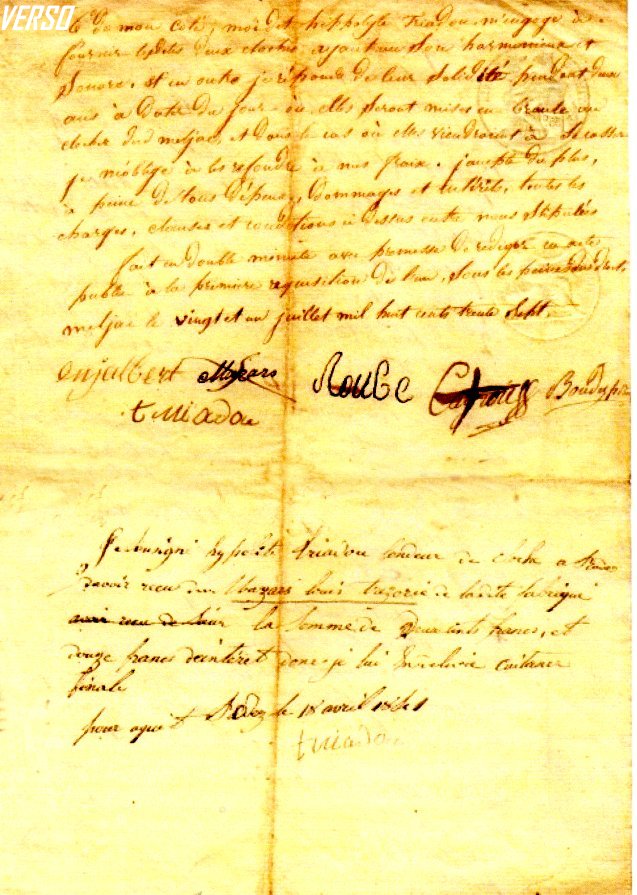 VERSO
Et de mon coté, moi dit hippolyte Triadou m'engage à
fournir lesdites deux cloches ayant un Son harmonieux et
Sonore, et en outre je réponds de leur Solidité pendant deux
ans à Dater du jour où elles Seront mises en branle au
clocher dud meljac, et dans le cas où elles viendroient à Se casser
je m'oblige à les refondre à mes fraix. j'accepte Du plus,
à peine de tous dépens, dommages et intérêts, toutes les
charges, clauses et conditions ci dessus entre nous Stipulées
fait en double minute avec promesse de rediger en acte
public à la première requisition de l'un, Sous les peines de droit
meljac le vingt et un juillet mil huit cents trente Sept.
enjalbert Mazars Roube
triadou
Je sousigné hypolite triadou fondeur de cloche a Rodez
davoir recu du Mazars louis trezorié de ladite fabrique
avoir recu de Sieur la Somme de Deux cents francs, et
douze francs deinteret donc je lui en delivre cuitance
finale
pour aquit Rodez le 18 avril 1841
triadou